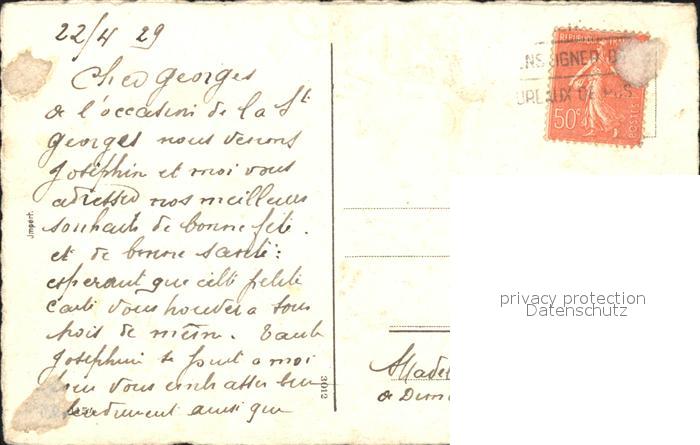 22/4 29
Cher Georges
a l'occasion de la St
Georges nous venons
Joséphin et moi vous
adresser nos meilleurs
souhaits de bonne fête.
et de bonne santé:
esperant que cette petite
carte vous trouvera tous
trois de même. Tante
Joséphin se joint a moi
pour vous embrasser bien
tendrement ainsi que
Import.
3012
REPUBLIQUE
50c
POSTES
NSIGNER
UREAUX DE POS
privacy protection
Datenschutz
Madel